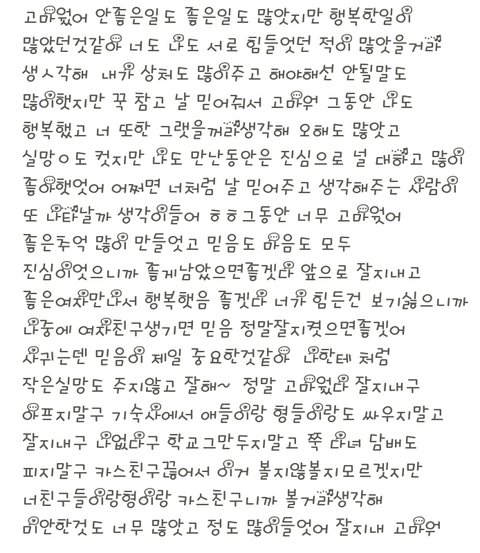 고마웠어 안좋은일도 좋은일도 많앗지만 행복한일이
많았던것같아 너도 나도 서로 힘들엇던 적이 많앗을거라
생ㅅ각해 내가 상처도 많이주고 해야해선 안될말도
많이햇지만 꾹 참고 날 믿어줘서 고마워 그동안 나도
행복했고 너 또한 그랫을꺼라생각해 오해도 많앗고
실망ㅇ도 컷지만 나도 만난동안은 진심으로 널 대하고 많이
좋아햇엇어 어쩌면 너처럼 날 믿어주고 생각해주는 사람이
또 나타날까 생각이들어 ㅎㅎ그동안 너무 고마웟어
좋은추억 많이 만들엇고 믿음도 마음도 모두
진심이엇으니까 좋게남았으면좋겟다 앞으로 잘지내고
좋은여자만나서 행복햇음 좋겟다 너가 힘든건 보기싫으니까
나중에 여자친구생기면 믿음 정말잘지켯으면좋겟어
사귀는덴 믿음이 제일 중요한것같아 나한테 처럼
작은실망도 주지않고 잘해~ 정말 고마웠다 잘지내구
아프지말구 기숙사에서 애들이랑 형들이랑도 싸우지말고
잘지내구 나없다구 학교그만두지말고 쭉 다녀 담배도
피지말구 카스친구끊어서 이거 볼지않볼지모르겟지만
너친구들이랑형이랑 카스친구니까 볼거라생각해
미안한것도 너무 많앗고 정도 많이들엇어 잘지내 고마워